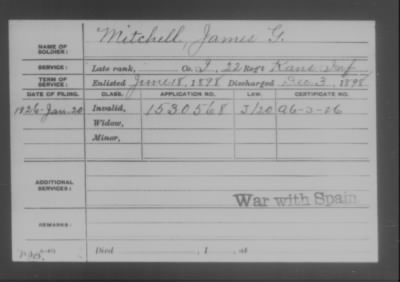 NAME OF SOLDIER: Mitchell, James G.
SERVICE: Late rank, Co. I, 22 Reg't Kans Inf
TERM OF SERVICE: Enlisted June 18, 1898 Discharged Dec. 3, 1898
DATE OF FILING. CLASS. APPLICATION NO. LAW. CERTIFICATE NO.
1926-Jan-20 Invalid, 1530568 J/20
Widow,
Minor,
ADDITIONAL SERVICES:
War with Spain
REMARKS:
Died , 1 , at